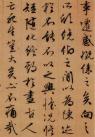 事遷感慨係之矣向之
所欣俛仰之間以為陳迹
猶不能不以之興懷況脩
短隨化終期於盡古人
云死生亦大矣豈不痛哉